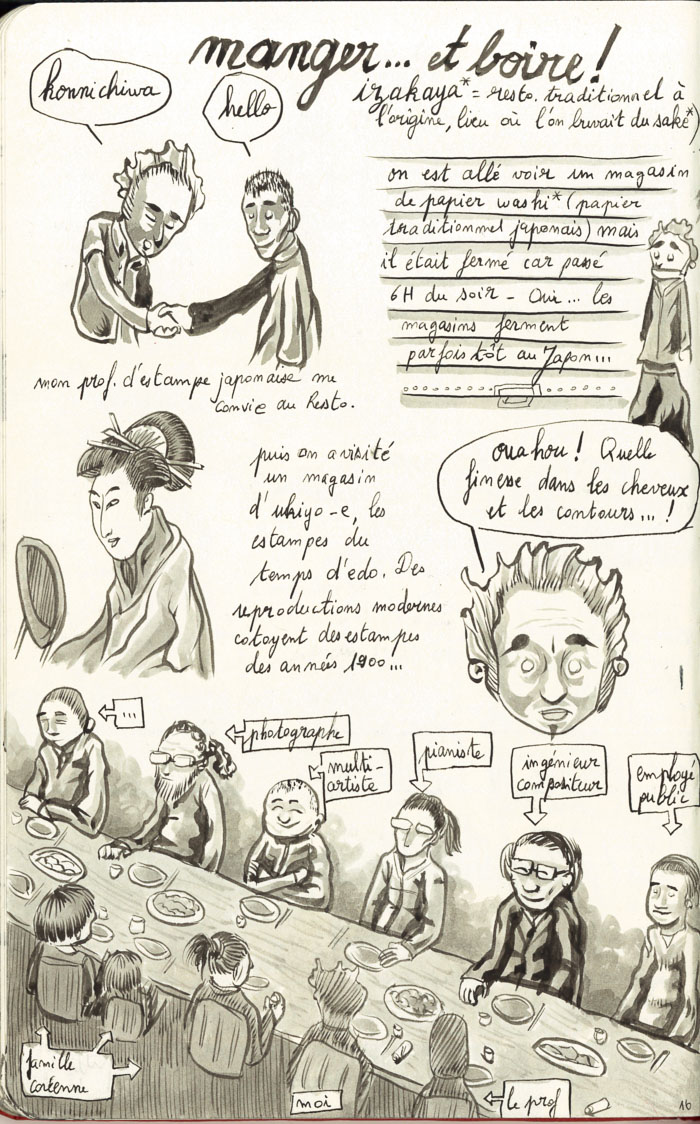 manger... et boire!
konnichiwa
hello
izakaya* = resto. traditionnel à
l'origine, lieu où l'on buvait du saké*)
on est allé voir un magasin
de papier washi* (papier
traditionnel japonais) mais
il était fermé car passé
6H du soir - Oui... les
magasins ferment
parfois tôt au Japon...
mon prof. d'estampe japonaise me
convie au Resto.
puis on a visité
un magasin
d'ukiyo-e, les
estampes du
temps d'edo. Des
reproductions modernes
cotoyent des estampes
des années 1900...
ouahou! Quelle
finesse dans les cheveux
et les contours...!
...
photographe
multi-
artiste
pianiste
ingénieur
compositeur
employé
public
famille
coréenne
moi
le prof
16